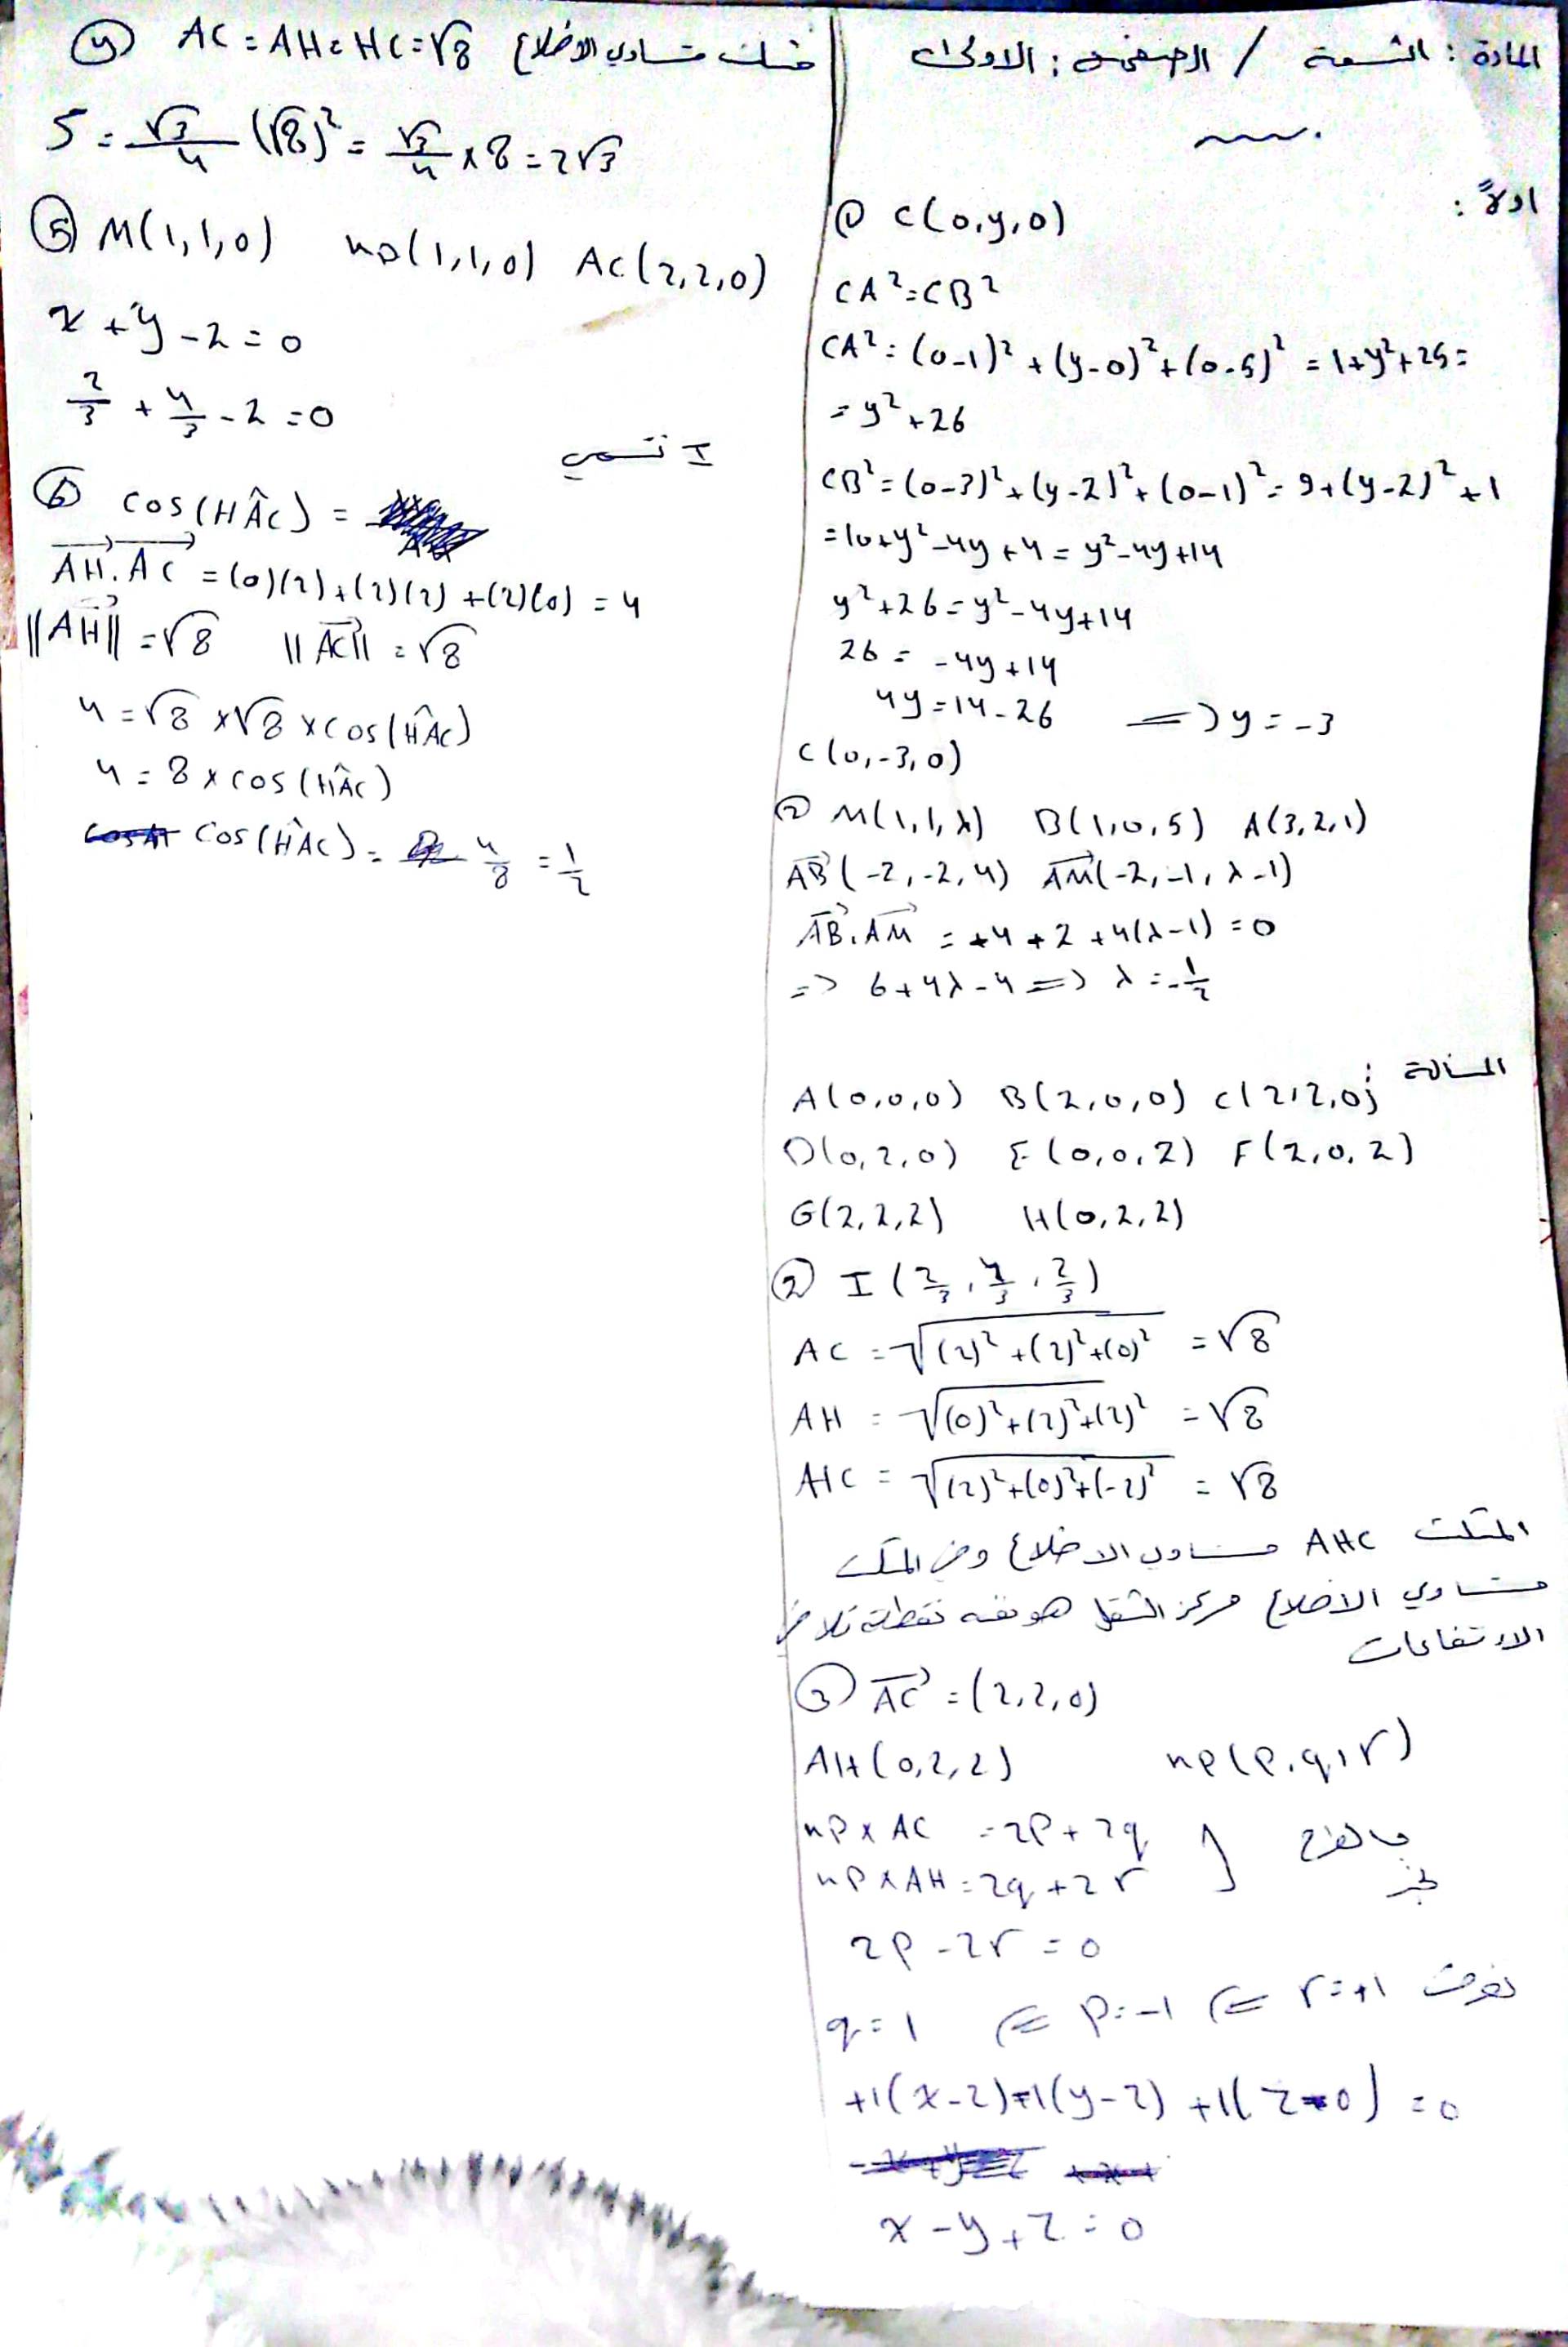 المادة : الأشعة / الصفحة : الاولى
اولاً :
① C(0,y,0)
CA²=CB²
CA²=(0-1)²+(y-0)²+(0-5)²=1+y²+25=
=y²+26
CB²=(0-3)²+(y-2)²+(0-1)²=9+(y-2)²+1
=10+y²-4y+4=y²-4y+14
y²+26=y²-4y+14
26=-4y+14
4y=14-26 => y=-3
C(0,-3,0)
② M(1,1,λ) B(1,0,5) A(3,2,1)
AB(-2,-2,4) AM(-2,-1,λ-1)
AB.AM=+4+2+4(λ-1)=0
=> 6+4λ-4 => λ=-1/2
المسألة :
A(0,0,0) B(2,0,0) C(2,2,0)
D(0,2,0) E(0,0,2) F(2,0,2)
G(2,2,2) H(0,2,2)
② I(2/3,4/3,2/3)
AC=√((2)²+(2)²+(0)²)=√8
AH=√((0)²+(2)²+(2)²)=√8
HC=√((2)²+(0)²+(-2)²)=√8
المثلث AHC متساوي الاضلاع وفي المثلث
متساوي الاضلاع مركز الثقل هو نفسه نقطة تلاقي
الارتفاعات
③ AC=(2,2,0)
AH(0,2,2) np(p,q,r)
np x AC=2p+2q
np x AH=2q+2r } بالطرح
نجد
2p-2r=0
نفرض r=+1 <= p=-1 <= q=1
+1(x-2)-1(y-2)+1(z-0)=0
x-y+z=0
④ AC=AH=HC=√8 مثلث متساوي الاضلاع
S=√3/4(√8)²=√3/4x8=2√3
⑤ M(1,1,0) np(1,1,0) AC(2,2,0)
x+y-2=0
2/3+4/3-2=0
I تنتمي
⑥ cos(HÂC)=
AH.AC=(0)(2)+(2)(2)+(2)(0)=4
||AH||=√8 ||AC||=√8
4=√8x√8xcos(HÂC)
4=8xcos(HÂC)
cos(HÂC)=4/8=1/2